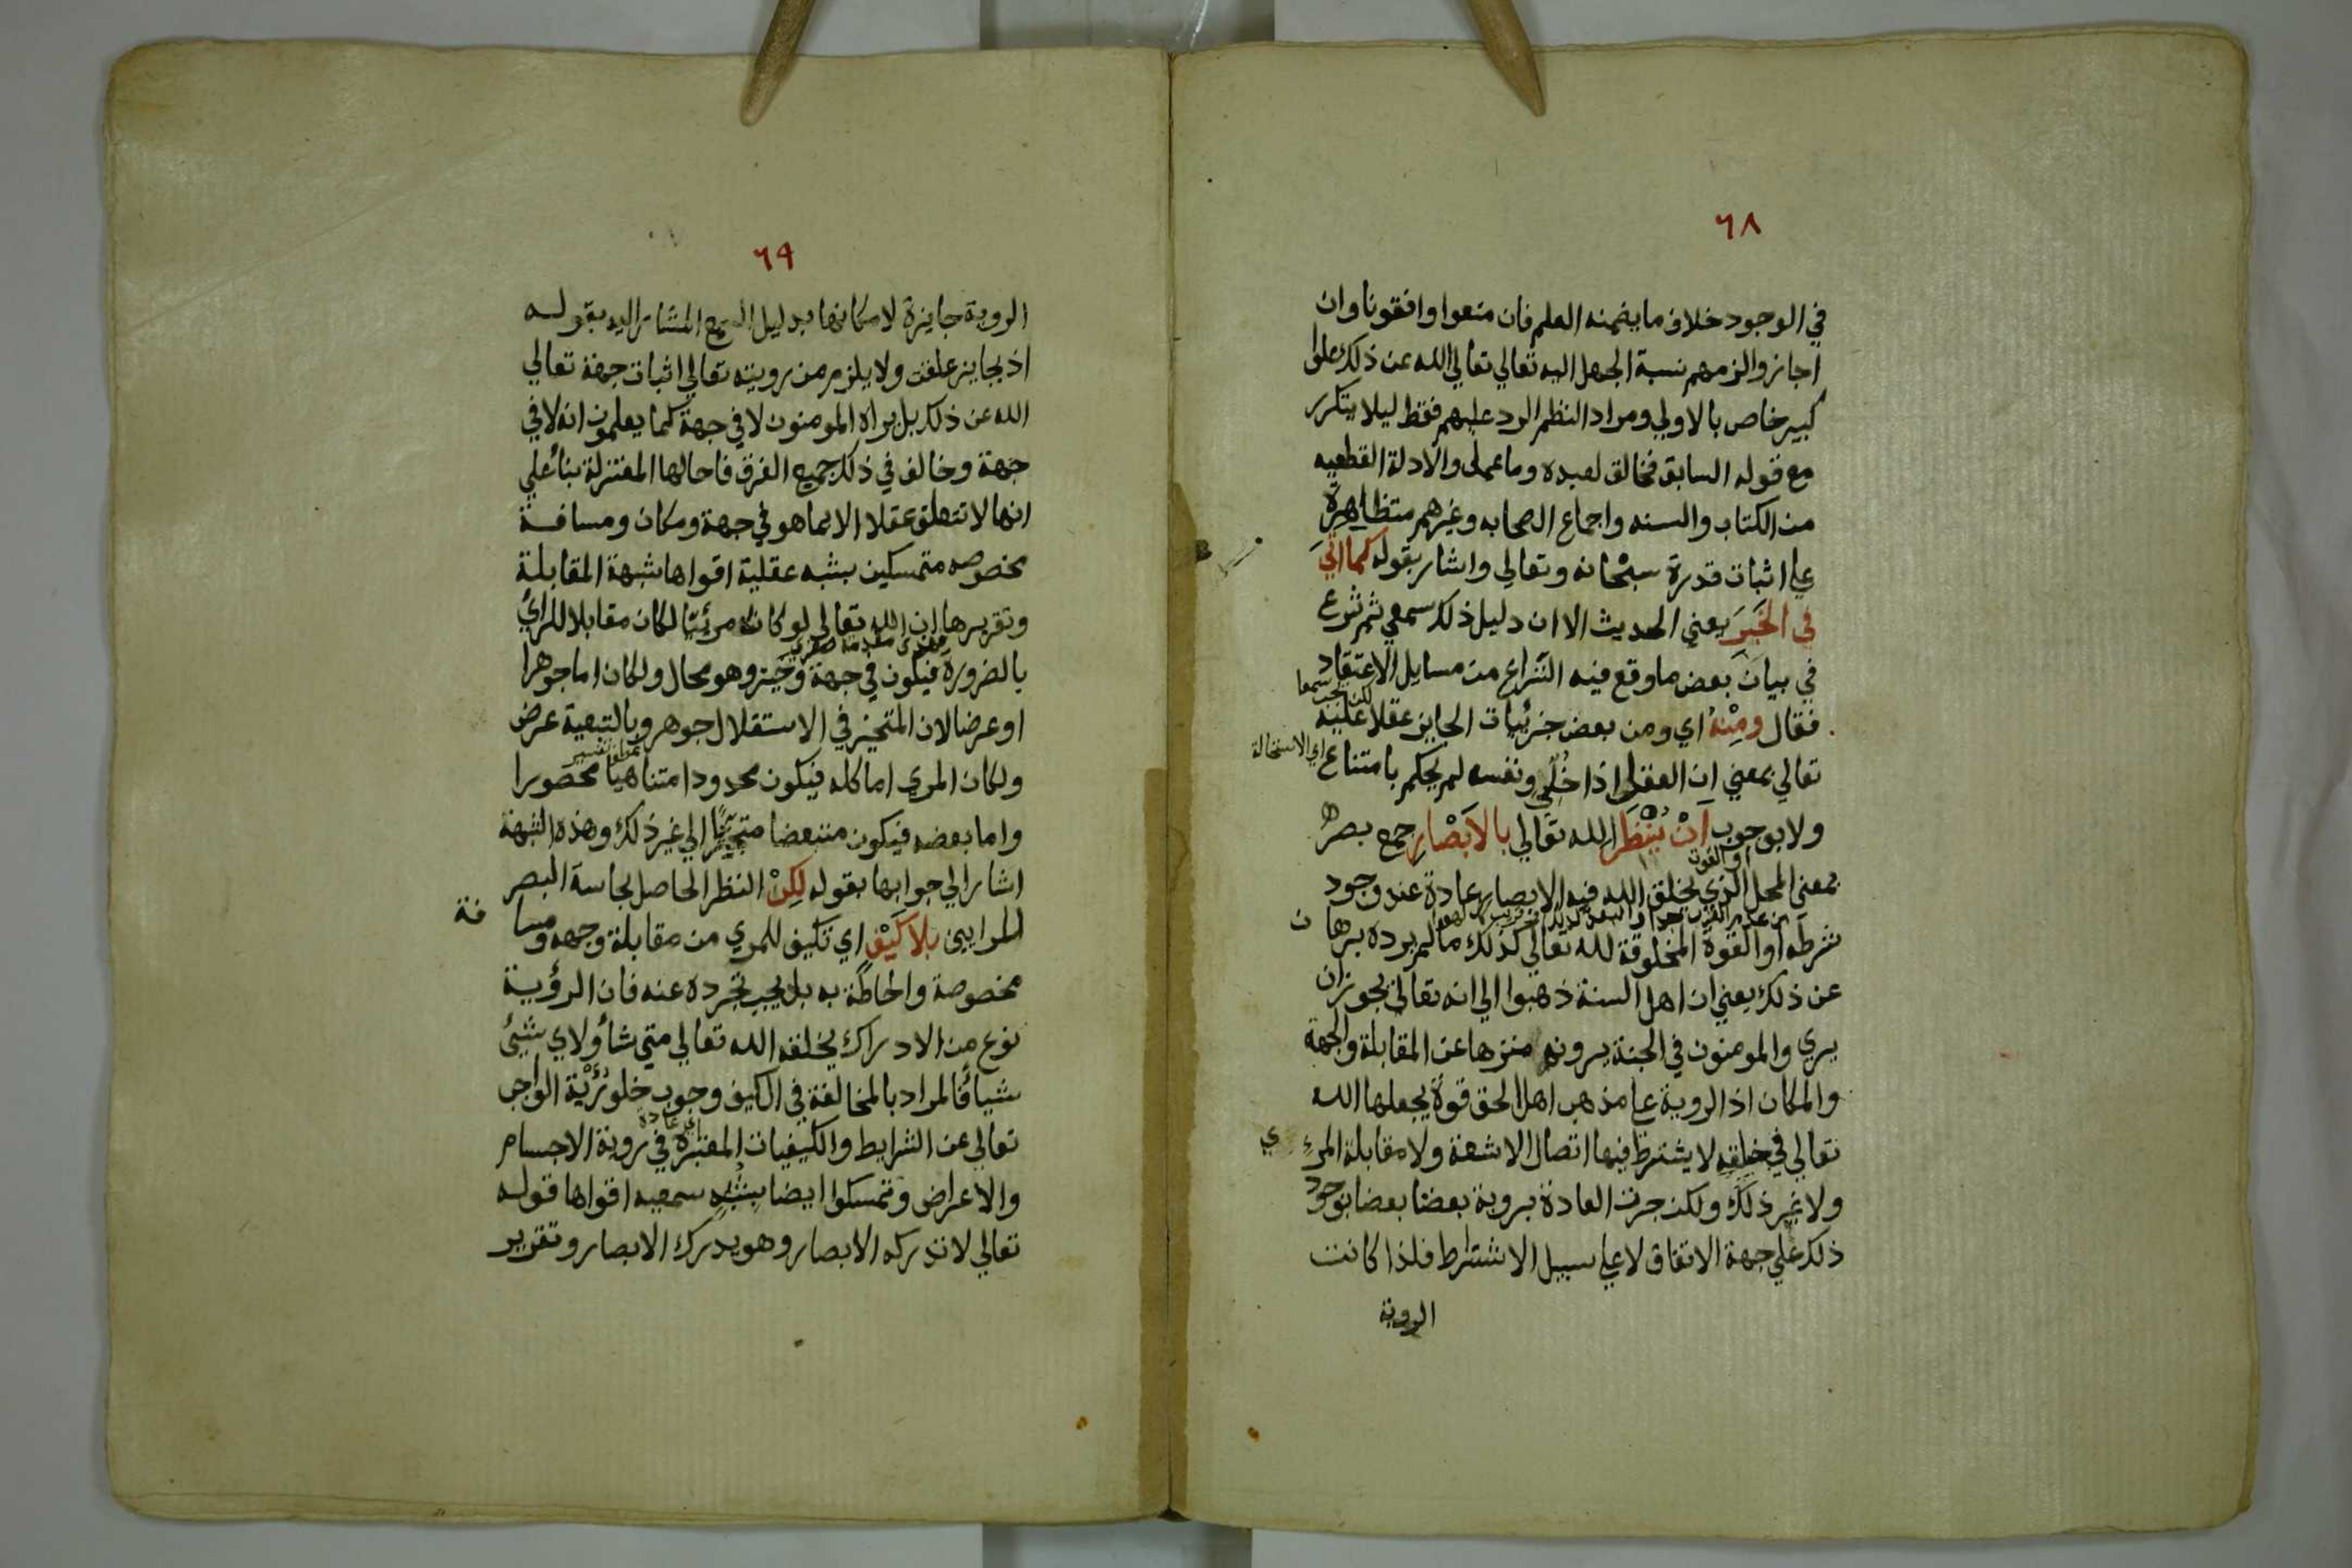 ٦٨
في الوجود خلاف ما يضمنه العلم فان منعوا وافقونا وان
اجازوا لزمهم نسبة الجهل اليه تعالي تعالي الله عن ذلك علوا
كبير خاص بالاولي ومراد النظم الرد عليهم فقط ليلا يتكرر
مع قوله السابق فخالق لعبده وما عمل والادلة القطعيه
من الكتاب والسنه واجماع الصحابه وغيرهم متظاهرة
علي اثبات قدرة سبحانه وتعالي واشار بقوله كما اتي
في الخبر يعني الحديث الا ان دليل ذلك سمعي ثم شرع
في بيان بعض ما وقع فيه النزاع من مسايل الاعتقاد
فقال ومنه اي ومن بعض جزئيات الجايز عقلا عليه
لكن يجب سمعا
تعالي بمعني ان العقل اذا خلي ونفسه لم يحكم بامتناع
اي الاستحالة
ولا بوجوب ان ينظر الله تعالي بالابصار جمع بصر
بمعني المحل الذي يخلق الله فيه الابصار عادة عند وجود
او القوة
شرطه او القوة المخلوقة لله تعالي كذلك ما لم يرد برهان
عن ذلك يعني ان اهل السنة ذهبوا الي انه تعالي يجوز ان
يري والمومنون في الجنة يرونه منزها عن المقابلة والجهة
والمكان اذ الروية علي مذهب اهل الحق قوة يجعلها الله
تعالي في خلقه لا يشترط فيها اتصال الاشعة ولا مقابلة المرءي
ولا غير ذلك ولكن جرت العادة بروية بعضنا بعضا بوجود
ذلك علي جهة الاتفاق لا علي سبيل الاشتراط فلذا كانت
الروية
٦٩
الروية جايزة لامكانها بدليل السمع المشار اليه بقوله
اذ بجايز علقت ولا يلزم من رويته تعالي اثبات جهة تعالي
الله عن ذلك بل يراه المومنون لا في جهة كما يعلمون انه لا في
جهة وخالف في ذلك جميع الفرق فاحالها المعتزلة بناء علي
انها لا تتعلق عقلا الا بما هو في جهة ومكان ومسافة
مخصوصه متمسكين بشبه عقلية اقواها شبهة المقابلة
وتقريرها ان الله تعالي لو كان مرئيا لكان مقابلا للرائي
بالضرورة فيكون في جهة وحيز وهو محال ولكان اما جوهرا
او عرضا لان المتحيز في الاستقلال جوهر وبالتبعية عرض
ولكان المري اما كله فيكون محدودا متناهيا محصورا
واما بعضه فيكون متبعضا متجزئا الي غير ذلك وهذه الشبهة
اشار الي جوابها بقوله لكن النظر الحاصل بحاسة البصر
للرايين بلا كيف اي تكيف للمري من مقابلة وجهه ومسافة
مخصوصة واحاطة به بل يجب تجرده عنه فان الرؤية
نوع من الادراك يخلقه الله تعالي متي شاء ولاي شيئ
شياء فالمراد بالمخالفة في الكيف وجوب خلو رؤية الواجب
تعالي عن الشرايط والكيفيات المعتبرة في روية الاجسام
والاعراض وتمسكوا ايضا بشبه سمعيه اقواها قوله
تعالي لا تدركه الابصار وهو يدرك الابصار وتقرير